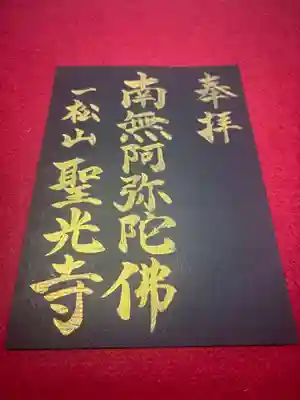 奉拝
南無阿弥陀佛
一松山聖光寺